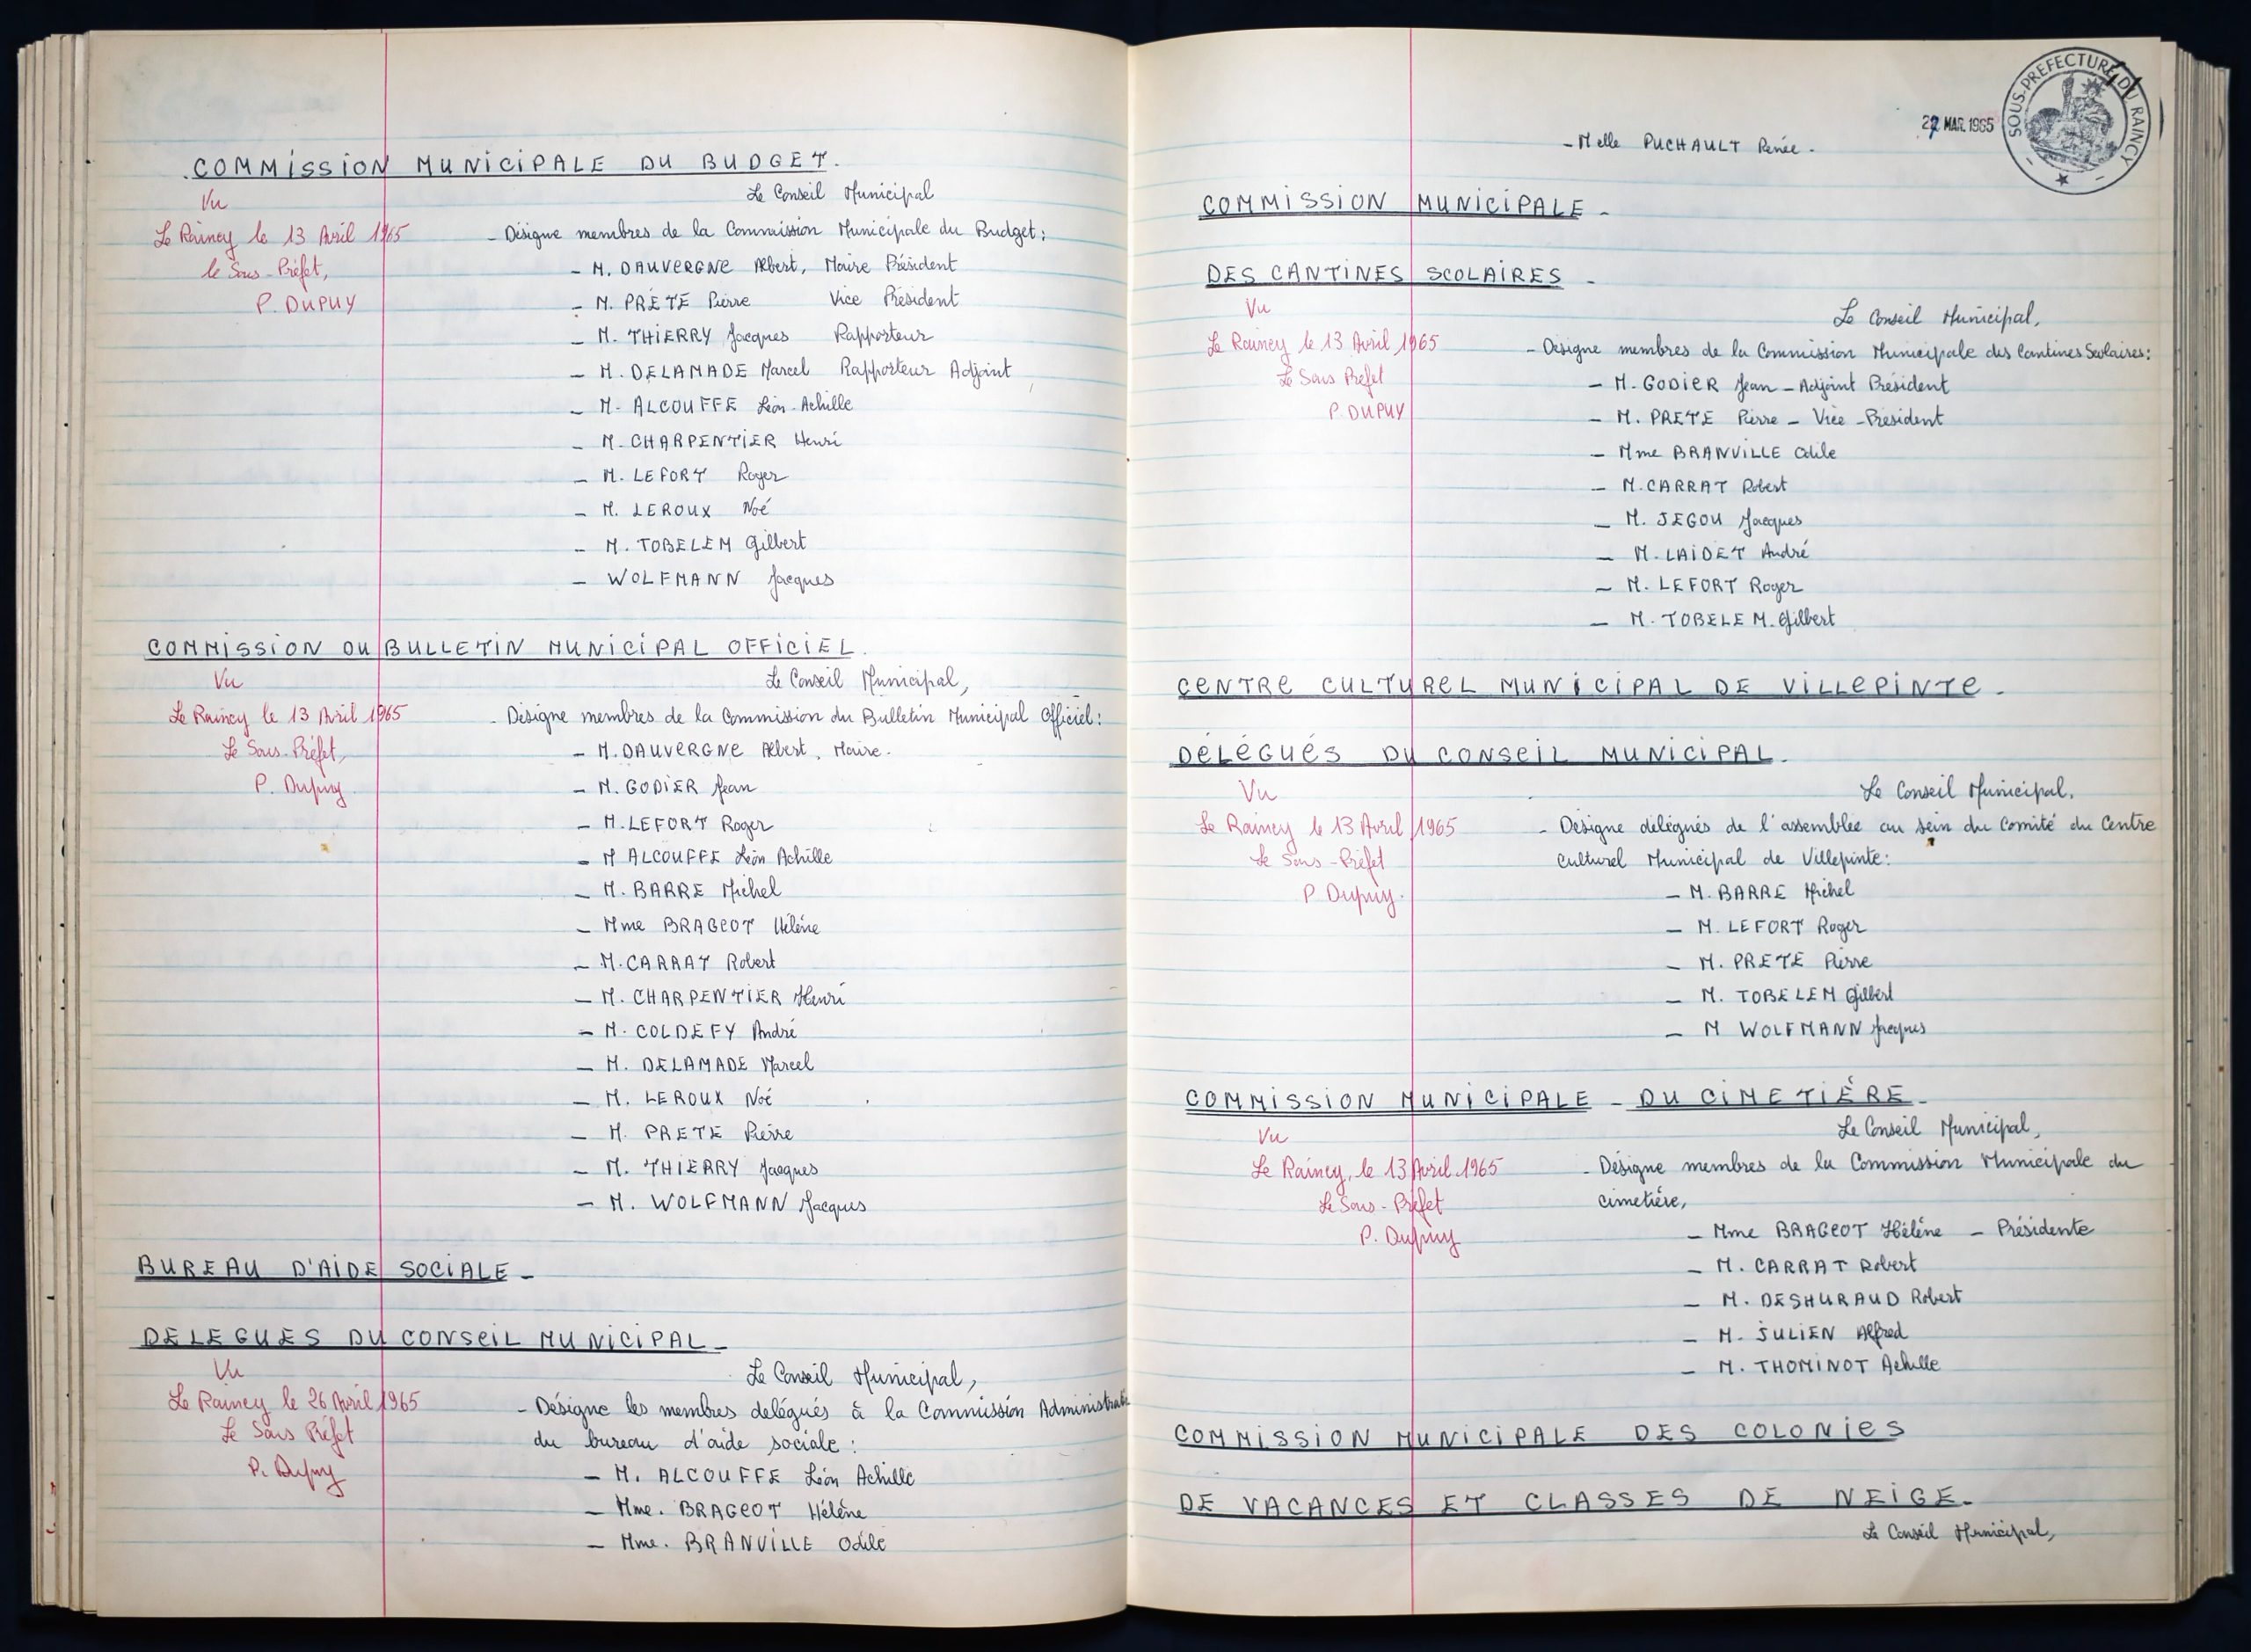 COMMISSION MUNICIPALE DU BUDGET.
Vu
Le Conseil Municipal
Le Raincy le 13 Avril 1965
- Désigne membres de la Commission Municipale du Budget :
le Sous-Préfet,
- M. DAUVERGNE Albert, Maire Président
P. DUPUY
- M. PRÉTÉ Pierre Vice Président
- M. THIERRY Jacques Rapporteur
- M. DELAMADE Marcel Rapporteur Adjoint
- M. ALCOUFFE Léon-Achille
- M. CHARPENTIER Henri
- M. LEFORT Roger
- M. LEROUX Noé
- M. TOBELEM Gilbert
- WOLFMANN Jacques
COMMISSION DU BULLETIN MUNICIPAL OFFICIEL.
Vu
Le Conseil Municipal,
Le Raincy le 13 Avril 1965
- Désigne membres de la Commission du Bulletin Municipal Officiel :
Le Sous-Préfet,
- M. DAUVERGNE Albert, Maire.
P. Dupuy
- M. GODIER Jean
- M. LEFORT Roger
- M ALCOUFFE Léon Achille
- M. BARRE Michel
- Mme BRAGEOT Hélène
- M. CARRAT Robert
- M. CHARPENTIER Henri
- M. COLDEFY André
- M. DELAMADE Marcel
- M. LEROUX Noé
- M. PRETE Pierre
- M. THIERRY Jacques
- M. WOLFMANN Jacques
BUREAU D'AIDE SOCIALE -
DELEGUES DU CONSEIL MUNICIPAL -
Vu
Le Conseil Municipal,
Le Raincy le 26 Avril 1965
- Désigne les membres delégués à la Commission Administrati
Le Sous Préfet
du bureau d'aide sociale :
P. Dupuy
- M. ALCOUFFE Léon Achille
- Mme. BRAGEOT Hélène
- Mme. BRANVILLE Odile
SOUS-PREFECTURE DU RAINCY
MAR. 1965
- Melle PUCHAULT Renée -
COMMISSION MUNICIPALE -
DES CANTINES SCOLAIRES -
Vu
Le Conseil Municipal,
Le Raincy le 13 Avril 1965
- Désigne membres de la Commission Municipale des Cantines Scolaires :
Le Sous Préfet
- M. GODIER Jean - Adjoint Président
P. DUPUY
- M. PRETE Pierre - Vice-Président
- Mme BRANVILLE Odile
- M. CARRAT Robert
- M. JEGOU Jacques
- M. LAIDET André
- M. LEFORT Roger
- M. TOBELEM. Gilbert
CENTRE CULTUREL MUNICIPAL DE VILLEPINTE -
DÉLÉGUÉS DU CONSEIL MUNICIPAL.
Vu
Le Conseil Municipal.
Le Raincy le 13 Avril 1965
- Désigne délégués de l'assemblée au sein du Comité du Centre
Le Sous-Préfet
Culturel Municipal de Villepinte :
P Dupuy.
- M. BARRE Michel
- M. LEFORT Roger
- M. PRETE Pierre
- M. TOBELEM Gilbert
- M WOLFMANN Jacques
COMMISSION MUNICIPALE - DU CIMETIÈRE -
Vu
Le Conseil Municipal,
Le Raincy, le 13 Avril 1965
- Désigne membres de la Commission Municipale du
Le Sous-Préfet
cimetière,
P. Dupuy
- Mme BRAGEOT Hélène - Présidente
- M. CARRAT Robert
- M. DESHURAUD Robert
- M. JULIEN Alfred
- M. THOMINOT Achille
COMMISSION MUNICIPALE DES COLONIES
DE VACANCES ET CLASSES DE NEIGE -
Le Conseil Municipal,